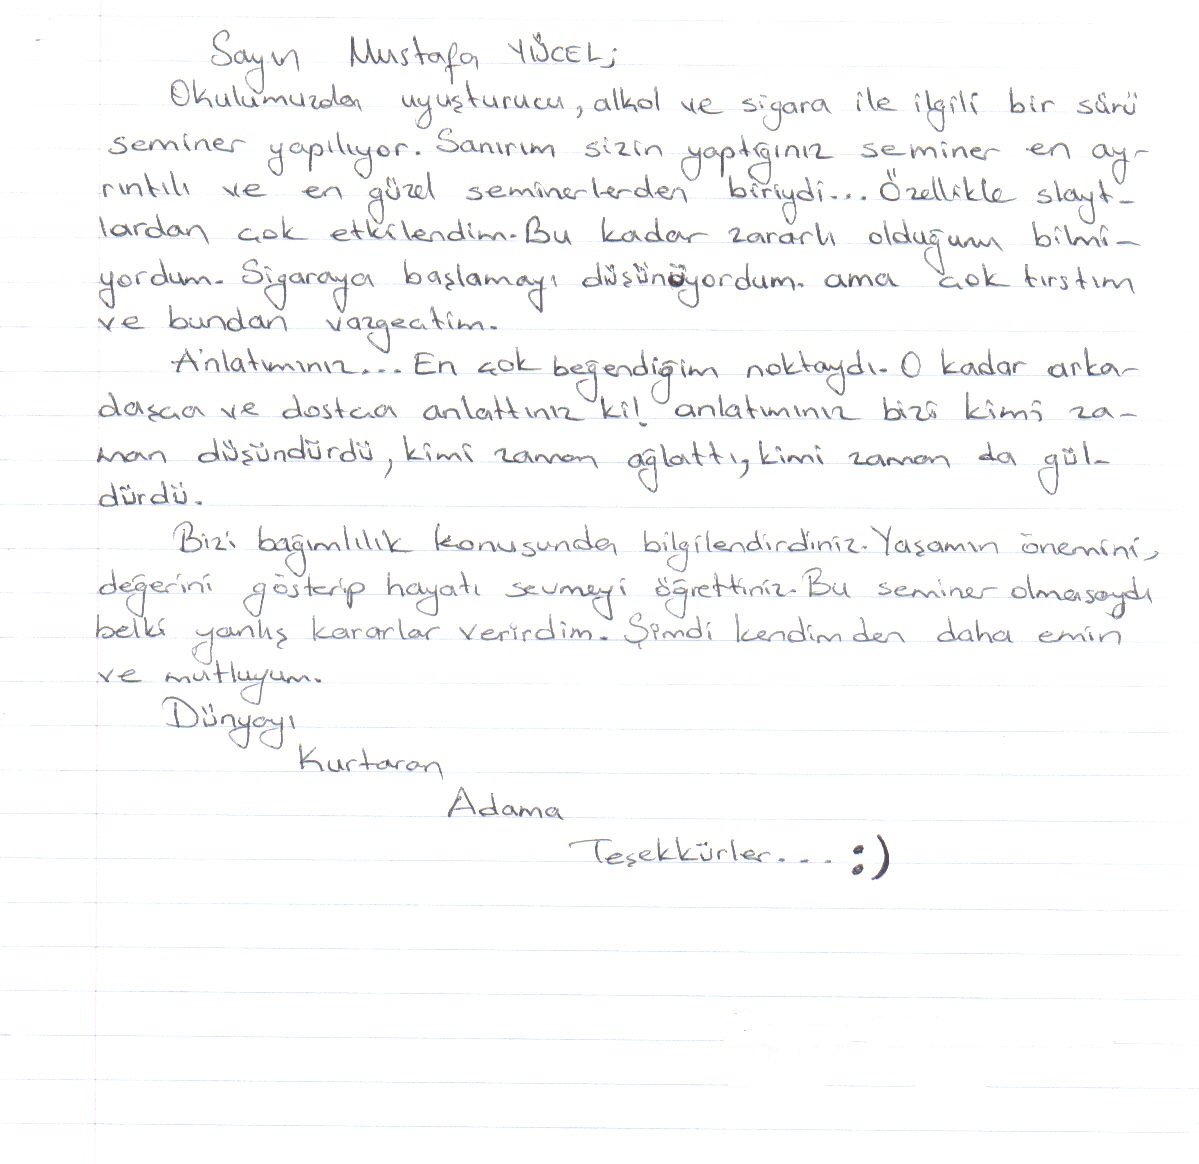 Sayın Mustafa YÜCEL;
Okulumuzda uyuşturucu, alkol ve sigara ile ilgili bir sürü
seminer yapılıyor. Sanırım sizin yaptığınız seminer en ay-
rıntılı ve en güzel seminerlerden biriydi... Özellikle slayt-
lardan çok etkilendim. Bu kadar zararlı olduğunu bilmi-
yordum. Sigaraya başlamayı düşünüyordum. ama çok tırstım
ve bundan vazgeçtim.
Anlatımınız... En çok beğendiğim noktaydı. O kadar arka-
daşça ve dostça anlattınız ki! anlatımınız bizi kimi za-
man düşündürdü, kimi zaman ağlattı, kimi zaman da gül-
dürdü.
Bizi bağımlılık konusunda bilgilendirdiniz. Yaşamın önemini,
değerini gösterip hayatı sevmeyi öğrettiniz. Bu seminer olmasaydı
belki yanlış kararlar verirdim. Şimdi kendimden daha emin
ve mutluyum.
Dünyayı
Kurtaran
Adama
Teşekkürler... :)